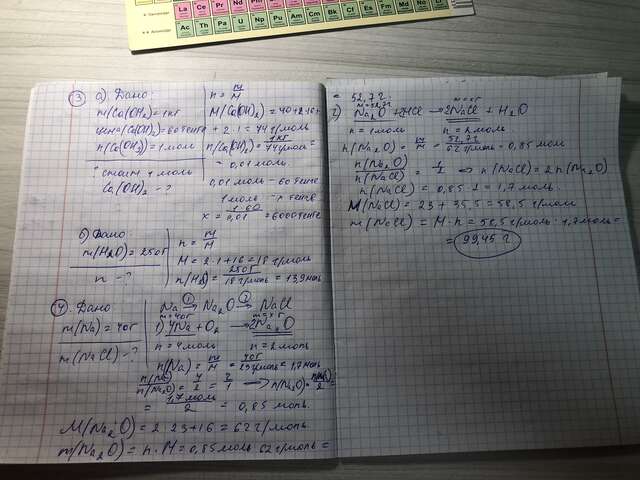 La Ce Pr Nd Pm
Ac Th Pa U Np Pu Am Cm Bk Cf Es Fm Md No Lr
③ а) Дано:
m(Ca(OH)₂)=1кг
цена(Ca(OH)₂)=60тенге
n(Ca(OH)₂)=1моль
? стоит 1 моль
Ca(OH)₂ – ?
n = m/M
M(Ca(OH)₂) = 40+2·16+
+ 2·1 = 74 г/моль
n(Ca(OH)₂) = 1кг/74г/моль =
= 0,01 моль
0,01 моль – 60 тенге
1 моль – x тенге
x = 1·60/0,01 = 6000тенге
б) Дано:
m(H₂O) = 250г
n – ?
n = m/M
M = 2·1+16=18 г/моль
n(H₂O) = 250г/18г/моль = 13,9 моль
④. Дано
m(Na) = 40г
m(NaCl) – ?
Na →① Na₂O →② NaCl
m=40г m=xг
1) 4Na + O₂ → 2Na₂O
n = 4моль n = 2моль
n(Na) = m/M = 40г/23г/моль = 1,7моль
n(Na)/n(Na₂O) = 4/2 = 2/1 → n(Na₂O) = n(Na)/2 =
= 1,7моль/2 = 0,85 моль
M(Na₂O) = 2·23+16 = 62г/моль
m(Na₂O) = n·M = 0,85моль·62г/моль =
= 52,7г
m=52,7г m=xг
2) Na₂O + 2HCl → 2NaCl + H₂O
n = 1моль n = 2моль
n(Na₂O) = m/M = 52,7г/62г/моль = 0,85 моль
n(Na₂O)/n(NaCl) = 1/2 ⇒ n(NaCl) = 2n(Na₂O)
n(NaCl) = 0,85·2 = 1,7моль
M(NaCl) = 23 + 35,5 = 58,5 г/моль
m(NaCl) = M·n = 58,5г/моль·1,7моль =
= 99,45 г